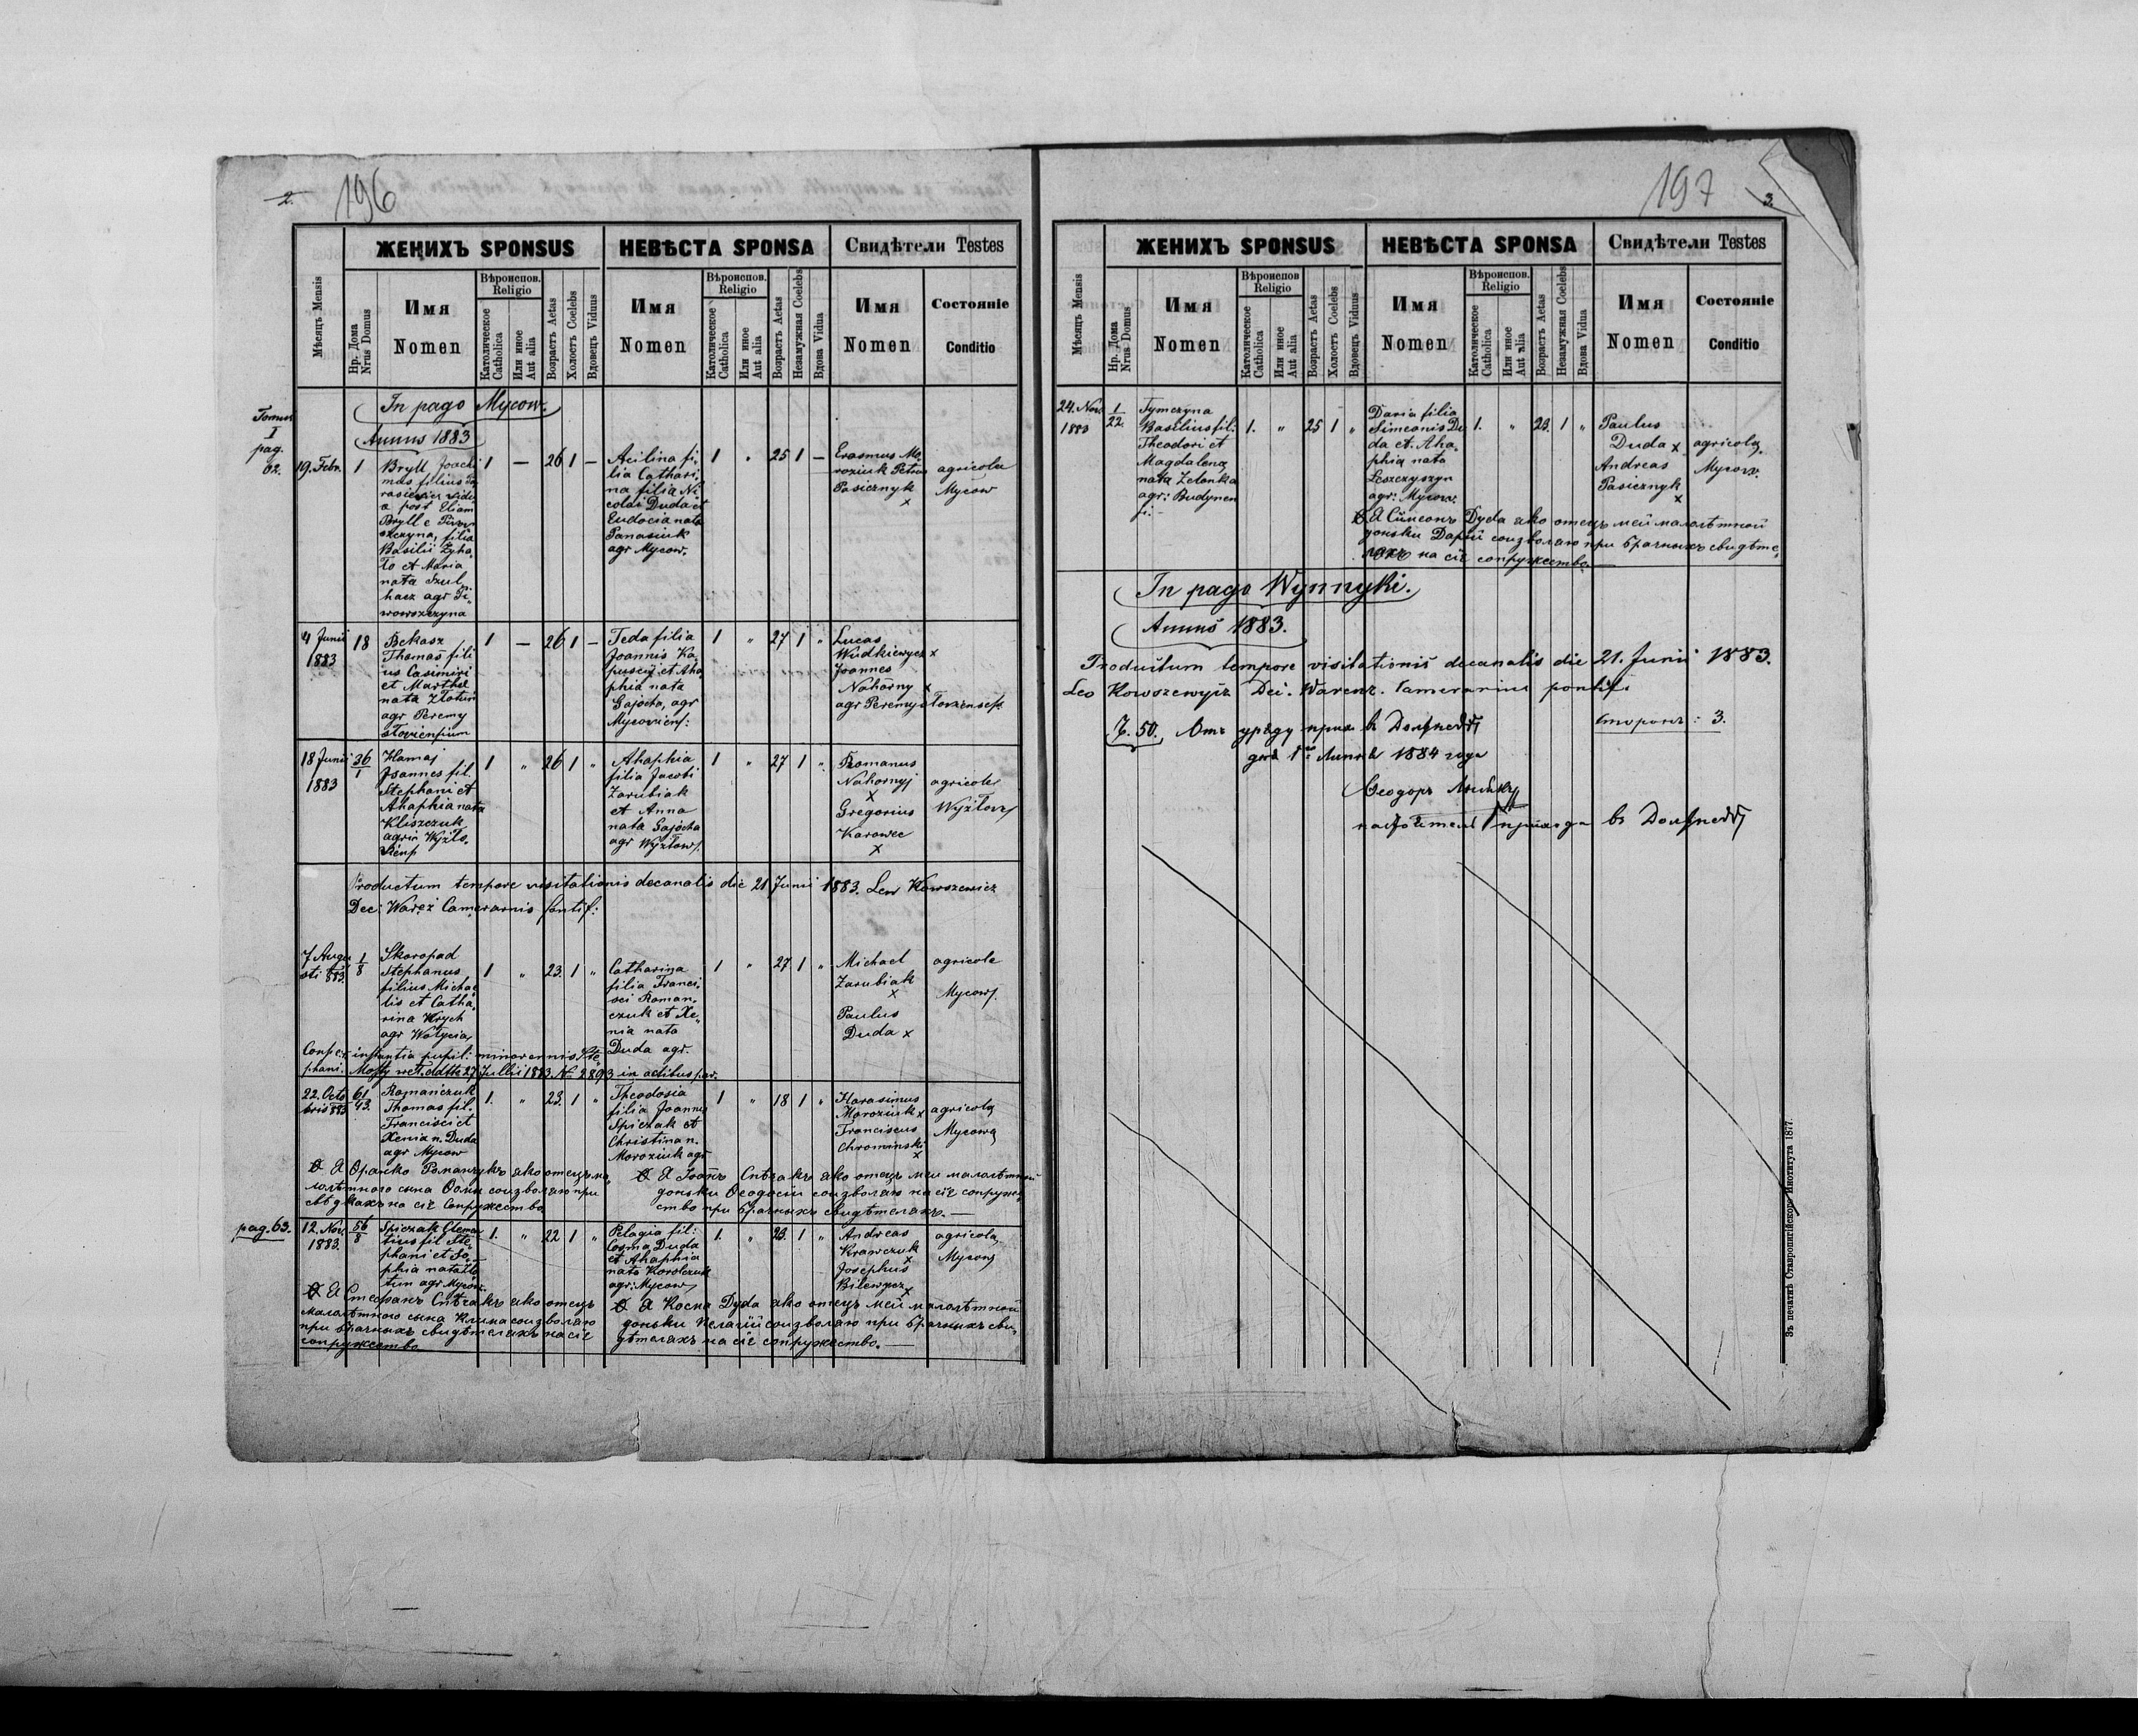 2.
196
ЖЕНИХЪ SPONSUS
НЕВѢСТА SPONSA
Свидѣтели Testes
Мѣсяцъ Mensis
Нр. Дома
Nrus Domus
Имя
Nomen
Вѣроиспов.
Religio
Католическое
Catholica
Или иное
Aut alia
Возрастъ Aetas
Холостъ Coelebs
Вдовецъ Viduus
Имя
Nomen
Вѣроиспов.
Religio
Католическое
Catholica
Или иное
Aut alia
Возрастъ Aetas
Незамужная Coelebs
Вдова Vidua
Имя
Nomen
Состояніе
Conditio
In pago Mycow.
Annus 1883
Tomus
I
pag.
62.
19. Febr.
1
Bryll Joachi
mus filius
a post Eliam
Bryll e
szczyna, filia
Basilii Zyha
to et Maria
nata Szul
hacz agr Pi
wowszczyna
1 — 26 1 —
Acilina fi
lia Cathari
na filia Ni
colai Duda et
Eudocia nata
Panasiuk
agr Mycow.
1 " 25 1 —
Erasmus Mo
roziuk Petrus
Pasicznyk
x
agricolae
Mycow
4 Junii
1883
18
Bekasz
Thomas fili
us Casimiri
et Marthae
nata Złotun
agr Peremy
słowiensium
1 — 26 1 —
Teda filia
Joannis Ka
puscij et Aha
phia nata
Gajocha, agr
Mycoviens:
1 " 27 1 "
Lucas
Wudkiewycz x
Joannes
Nahorny x
agr Peremysłowienses.
18 Junii
1883
36
1
Hamaj
Joannes fil.
Stephani et
Ahaphia nata
Kliszczuk
agric Wyżło
1 " 26 1 "
Ahaphia
filia Jacobi
Zarubiak
et Anna
nata Gajocha
agr Wyżłow.
1 " 27 1 "
Romanus
Nahornyj
x
Gregorius
Karawec
x
agricole
Wyżłow
Productum tempore visitationis decanalis die 21 Junii 1883. Leo Kowszewicz
Dec: Waręż Camerarius pontif:
7 Augu
sti 883.
1
8
Skoropad
Stephanus
filius Micha
lis et Catha
rina Hrych
agr Wolycia,
1 " 23. 1 "
Catharina
filia Franci
sci Roman
czuk et Xe
nia nata
Duda agr.
1 " 27. 1 "
Michael
Zarubiak
x
Paulus
Duda x
agricole
Mycow.
instantia pupil: minorennis Ste
phani. Mosty 27 Jullii 1883. № 2893 in actibus par.
22. Octo
bris 883
61
43.
Romańczuk
Thomas fil.
Francisci et
Xenia n. Duda
agr Mycow
1. " 23. 1 "
Theodosia
filia Joannis
Spiczak et
Christina n.
Moroziuk agr
1 " 18 1 "
Harasimus
Moroziuk x
Franciscus
Chrominski
x
agricola
Mycow
Я Франко Романчукъ яко отецъ ма
лолѣтного сына Ѳомы соизволяю при
свѣдкахъ на сіе сопружество
Я Іоаннъ Спѣчакъ яко отецъ моєи малолѣтной
доньки Ѳеодосіи соизволяю на сіе сопруже
ство при брачныхъ свидѣтеляхъ. —
pag. 63.
12. Nov.
1883.
56
8
Spiczak Clemen
tius fil Ste
phani et So
phia nata Zło
tun agr Mycow
1. " 22 1 "
Pelagia fil:
Cosma Duda
et Ahaphia
nata Korolczuk
agr: Mycow
1. " 23. 1 "
Andreas
Krawczuk
x
Josephus
Bilewycz
x
agricola
Mycow
Я Стефанъ Спѣчакъ яко отецъ
малолѣтного сына Клима соизволяю
при брачныхъ свидѣтеляхъ на сіе
сопружество
Я Косма Дуда яко отецъ моєй малолѣтной
доньки Пелагіи соизволяю при брачныхъ сви
дѣтеляхъ на сіе сопружество. —
197
3.
ЖЕНИХЪ SPONSUS
НЕВѢСТА SPONSA
Свидѣтели Testes
Мѣсяцъ Mensis
Нр. Дома
Nrus Domus
Имя
Nomen
Вѣроиспов
Religio
Католическое
Catholica
Или иное
Aut alia
Возрастъ Aetas
Холостъ Coelebs
Вдовецъ Viduus
Имя
Nomen
Вѣроиспов.
Religio
Католическое
Catholica
Или иное
Aut alia
Возрастъ Aetas
Незамужная Coelebs
Вдова Vidua
Имя
Nomen
Состояніе
Conditio
24. Nov.
1883
1
22.
Tymczyna
Basilius fil:
Theodori et
Magdalena
nata Zelonka
agr: Budynen
1. " 25 1 "
Daria filia
Simeonis Du
da et Aha
phia nata
Leszczyszyn
agr: Mycow:
1. " 23. 1 "
Paulus
Duda x
Andreas
Pasicznyk
x
agricola
Mycow.
Я Симеонъ Дуда яко отецъ моєй малолѣтной
доньки Даріи соизволяю при брачныхъ свидѣте
ляхъ на сіе сопружество. —
In pago Wynnyki.
Annus 1883.
Productum tempore visitationis decanalis die 21. Junii 1883.
Leo Kowszewycz Dec. Warenz. Camerarius pontif:
Ч. 50. Отъ уряду прих. в
1884 года
Сторонъ: 3.
Ѳеодоръ
прихода въ
Зъ печатнѣ Ставропигійского Института 1877.